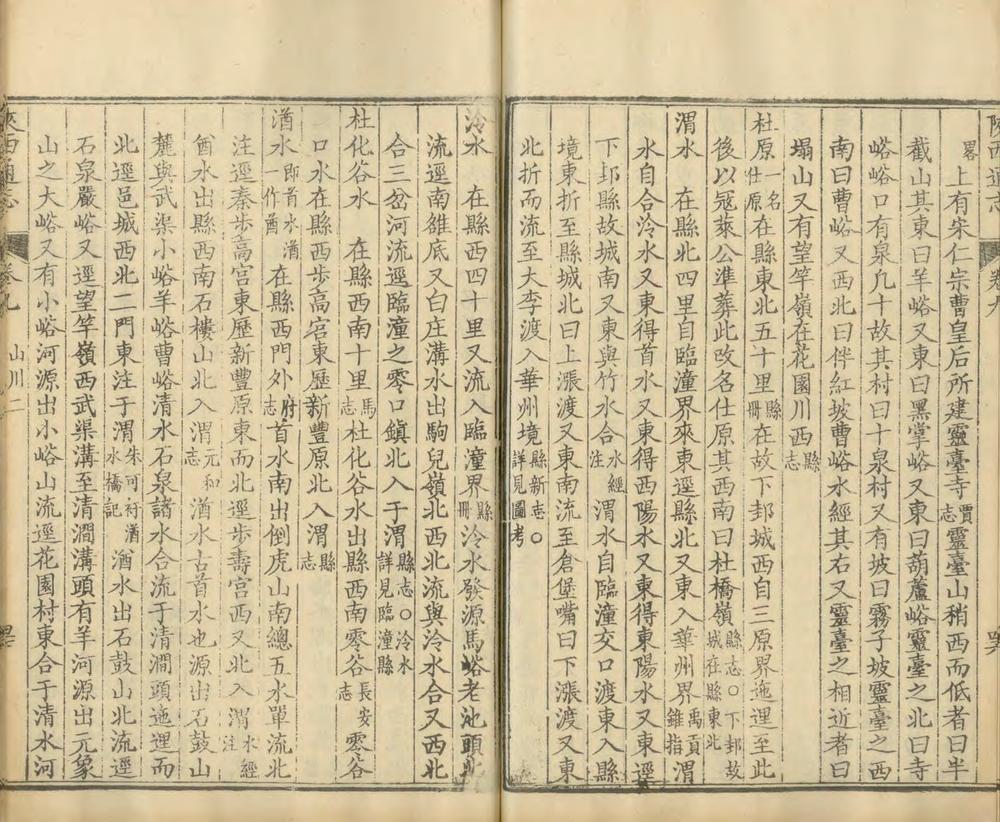 陝西通志 卷九
畧上有宋仁宗曹皇后所建靈臺寺賈志靈臺山稍西而低者曰半
截山其東曰羊峪又東曰黑掌峪又東曰葫蘆峪靈臺之北曰寺
峪峪口有泉几十故其村曰十泉村又有坡曰霧子坡靈臺之西
南曰曹峪又西北曰伴紅坡曹峪水經其右又靈臺之相近者曰
塌山又有望竿嶺在花園川西縣志
杜原一名仕原在縣東北五十里縣冊在故下邽城西自三原界迤逕至此
後以冦萊公準葬此改名仕原其西南曰杜橋嶺縣志○下邽故城在縣東北
渭水 在縣北四里自臨潼界來東逕縣北又東入華州界禹貢錐指渭
水自合泠水又東得首水又東得西陽水又東得東陽水又東逕
下邽縣故城南又東與竹水合水經注渭水自臨潼交口渡東入縣
境東折至縣城北曰上漲渡又東南流至倉堡嘴曰下漲渡又東
北折而流至大李渡入華州境縣新志○詳見圖考
泠水 在縣西四十里又流入臨潼界縣冊泠水發源馬峪老池頭北
流逕南雒底又白庄溝水出駒兒嶺北西北流與泠水合又西北
合三岔河流逕臨潼之零口鎮北入于渭縣志○泠水詳見臨潼縣
杜化谷水 在縣西南十里馬志杜化谷水出縣西南零谷長安志零谷
口水在縣西步高宮東歷新豐原北入渭縣志
湭水即首水湭一作酋在縣西門外府志首水南出倒虎山南總五水單流北
注逕秦步高宮東歷新豐原東而北逕步壽宮西又北入渭水經注
酋水出縣西南石樓山北入渭元和志湭水古首水也源出石鼓山
麓與武渠小峪羊峪曹峪清水石泉諸水合流于清澗頭迤逕而
北逕邑城西北二門東注于渭朱可衬湭水橋記湭水出石鼓山北流逕
石泉嚴峪又逕望竿嶺西武渠溝至清澗溝頭有羊河源出元象
山之大峪又有小峪河源出小峪山流逕花園村東合于清水河
陝西通志 卷九 山川二